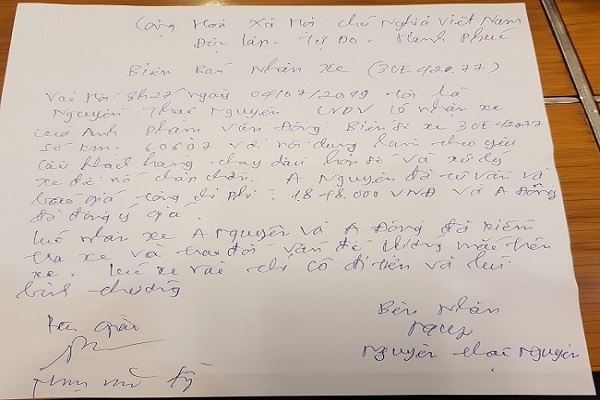 Cộng Hoà Xã Hội chủ Nghĩa Việt Nam
Độc lập. Tự Do. Hạnh Phúc
Biên Bản Nhận Xe (30E 420.77)
Vào Hồi: 8h27 ngày 04/07/2019 tôi là
Nguyễn Thái Nguyên CVDV có nhận xe
của Anh Phạm Văn Đông Biển số xe 30E42077
số km: 60607 với nội dung làm theo yêu
cầu khách hàng thay dầu hộp số và xử lý
xe đề nổ chập chờn. A Nguyên đã tư vấn và
báo giá tổng chi phí: 1848.000 VNĐ và A Đông
đã đồng ý giá.
lúc nhận xe A Nguyên và A Đông đã kiểm
tra xe và trao đổi vấn đề vướng mắc trên
xe. lúc xe vào chỉ có đi tiến và lùi
bình thường
Bên giao
Bên Nhận
Nguyễn Thái Nguyên